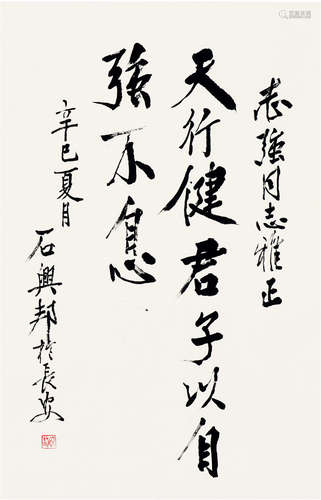 志强同志雅正
天行健君子以自
强不息
辛巳夏月
石興邦於長安